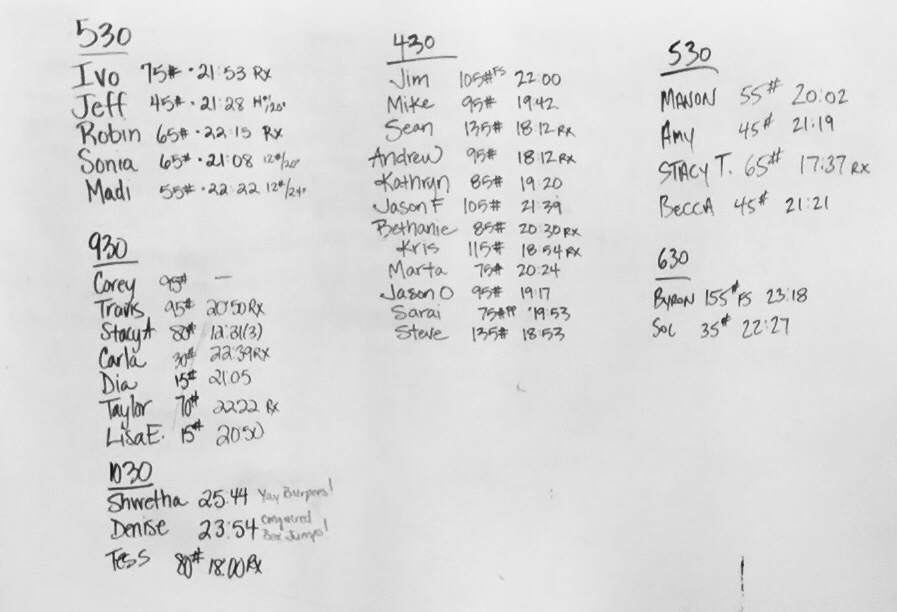 530
Ivo 75# · 21:53 Rx
Jeff 45# · 21:28 /20"
Robin 65# · 22:15 Rx
Sonia 65# · 21:08 12#/20"
Madi 55# · 22:22 12#/24"
930
Corey 95# —
Travis 95# 20:50 Rx
Stacy A 80# 12:31(3)
Carla 30# 22:39 Rx
Dia 15# 21:05
Taylor 70# 22:22 Rx
Lisa E. 15# 20:50
1030
Shwetha 25:44 Yay Burpees!
Denise 23:54 Conquered
Box Jumps!
Tess 80# 18:00 Rx
430
Jim 105# FS 22:00
Mike 95# 19:42
Sean 135# 18:12 Rx
Andrew 95# 18:12 Rx
Kathryn 85# 19:20
Jason F 105# 21:39
Bethanie 85# 20:30 Rx
Kris 115# 18:54 Rx
Marta 75# 20:24
Jason O 95# 19:17
Sarai 75# PP 19:53
Steve 135# 18:53
530
MANON 55# 20:02
Amy 45# 21:19
STACY T. 65# 17:37 RX
BECCA 45# 21:21
630
BYRON 155# FS 23:18
SOL 35# 22:27